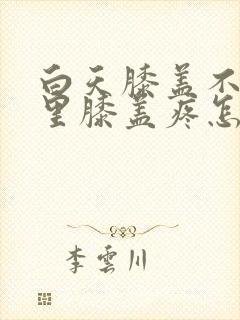 白天膝盖不
里膝盖疼怎
李雲川